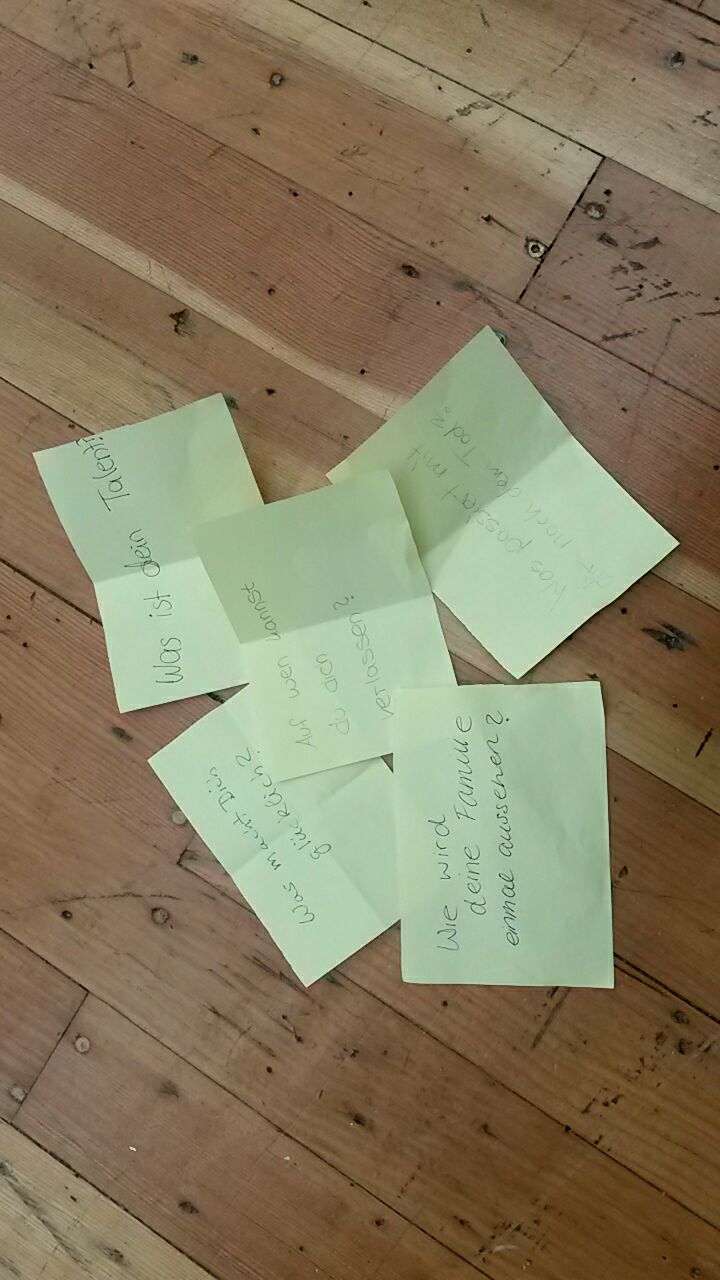 Was ist dein Talent?
Was passiert mit
dir nach dem Tod?
Auf wen kannst
du dich
verlassen?
Was macht Dich
glücklich?
Wie wird
deine Familie
einmal aussehen?